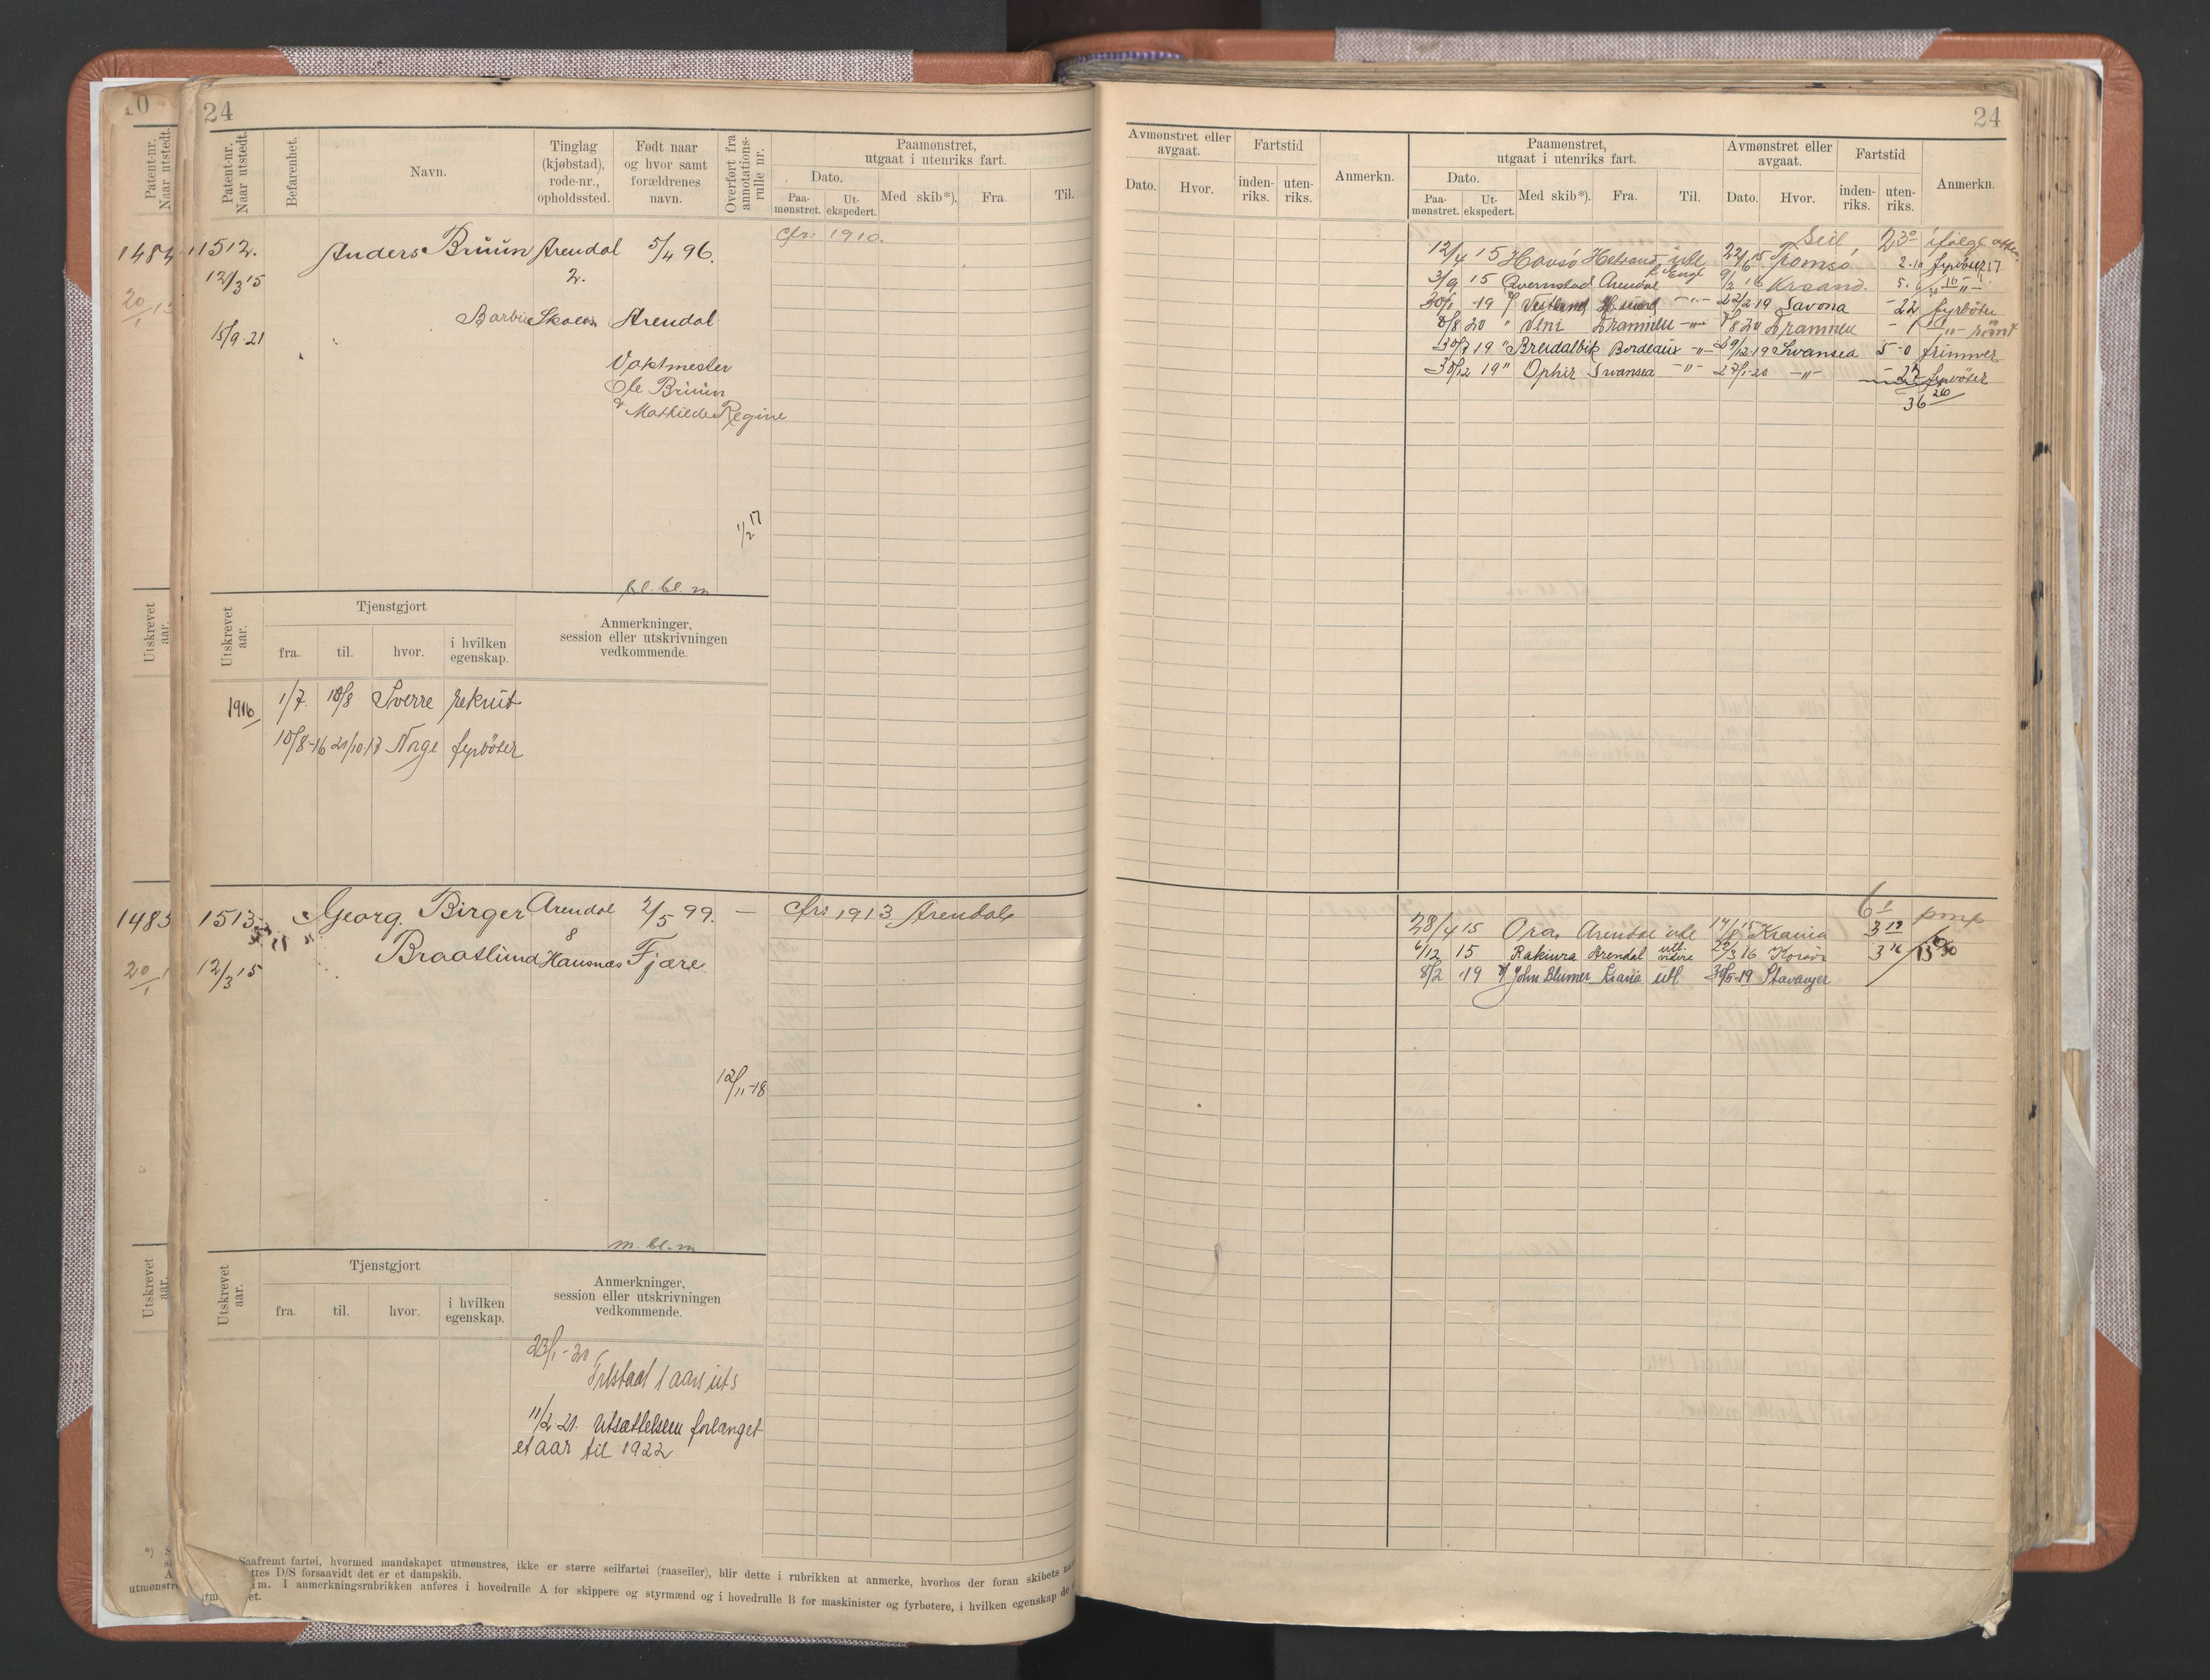 10
Patent-nr.
Naar utstedt.
1484
20/1 15
Utskrevet
aar.
1485
20/1
Utskrevet
aar.
24
Patent-nr.
Naar utstedt.
Befarenhet.
Navn.
Tinglag
(kjøbstad),
rode-nr.,
opholdssted.
Født naar
og hvor samt
forældrenes
navn.
Overført fra
annotations-
rulle nr.
Paamønstret,
utgaat i utenriks fart.
Dato.
Paa-
mønstret.
Ut-
ekspedert.
Med skib*).
Fra.
Til.
1512.
12/3 15
15/9-21
Anders Brüün Arendal 5/4 96.
2.
Arendal
Vaktmester
Ole Brüün
& Mathilde Regine
cfr: 1910.
1/2 17
bl. bl. m
Utskrevet
aar.
Tjenstgjort
fra.
til.
hvor.
i hvilken
egenskap.
Anmerkninger,
session eller utskrivningen
vedkommende.
1916 1/7. 10/8 Sverre rekrut
10/8-16 21/10 Norge fyrbøter
1513
12/3 15
Georg. Birger Arendal 2/5 99. —
8
Braatlund Hausnæs Fjære
cfr: 1913 Arendal
12/11-18
m. bl. m
Utskrevet
aar.
Tjenstgjort
fra.
til.
hvor.
i hvilken
egenskap.
Anmerkninger,
session eller utskrivningen
vedkommende.
23/1-20
Tilstaat 1 aars uts
11/2 21. Utsættelsen forlænget
et aar til 1922
Saafremt fartøi, hvormed mandskapet utmønstres, ikke er større seilfartøi (raaseiler), blir dette i rubrikken at anmerke, hvorhos der foran skibets
ttes D/S forsaavidt det er et dampskib.
m. I anmerkningsrubrikken anføres i hovedrulle A for skippere og styrmænd og i hovedrulle B for maskinister og fyrbøtere, i hvilken egenskap de
et.
24
Avmønstret eller
avgaat.
Dato.
Hvor.
Fartstid
inden-
riks.
uten-
riks.
Anmerkn.
Paamønstret,
utgaat i utenriks fart.
Dato.
Paa-
mønstret.
Ut-
ekspedert.
Med skib*).
Fra.
Til.
Avmønstret eller
avgaat.
Dato.
Hvor.
Fartstid
inden-
riks.
uten-
riks.
Anmerkn.
Seil 23° ifølge
12/4 15 Havsö utl 22/6 15 Tromsö 2.10 fyrbøter
3/9 15 Arendal Engl 9/2 16 Krsand. 5.6 -"-
30/1 -19 Vestland -"- 22/2 19 Savona - 22 fyrbøter
8/8 20 " Veni Drammen -"- Drammen
30/7 19 " Breidalvik Bordeaux -"- 29/12-19 Swansea 5-0 trimmer
30/12 19 " Ophir Swansea -"- 27/1-20 -"- - 27 fyrbøter
36 26
6 1
28/4 15 Ora Arendal utl 17/8 15 Krania 3 19
6/12 15 Rakiura Arendal utl. videre 22/3 16 Korsör 3 16
8/2 -19 John Blumer Krania utl 30/5-19 Stavanger